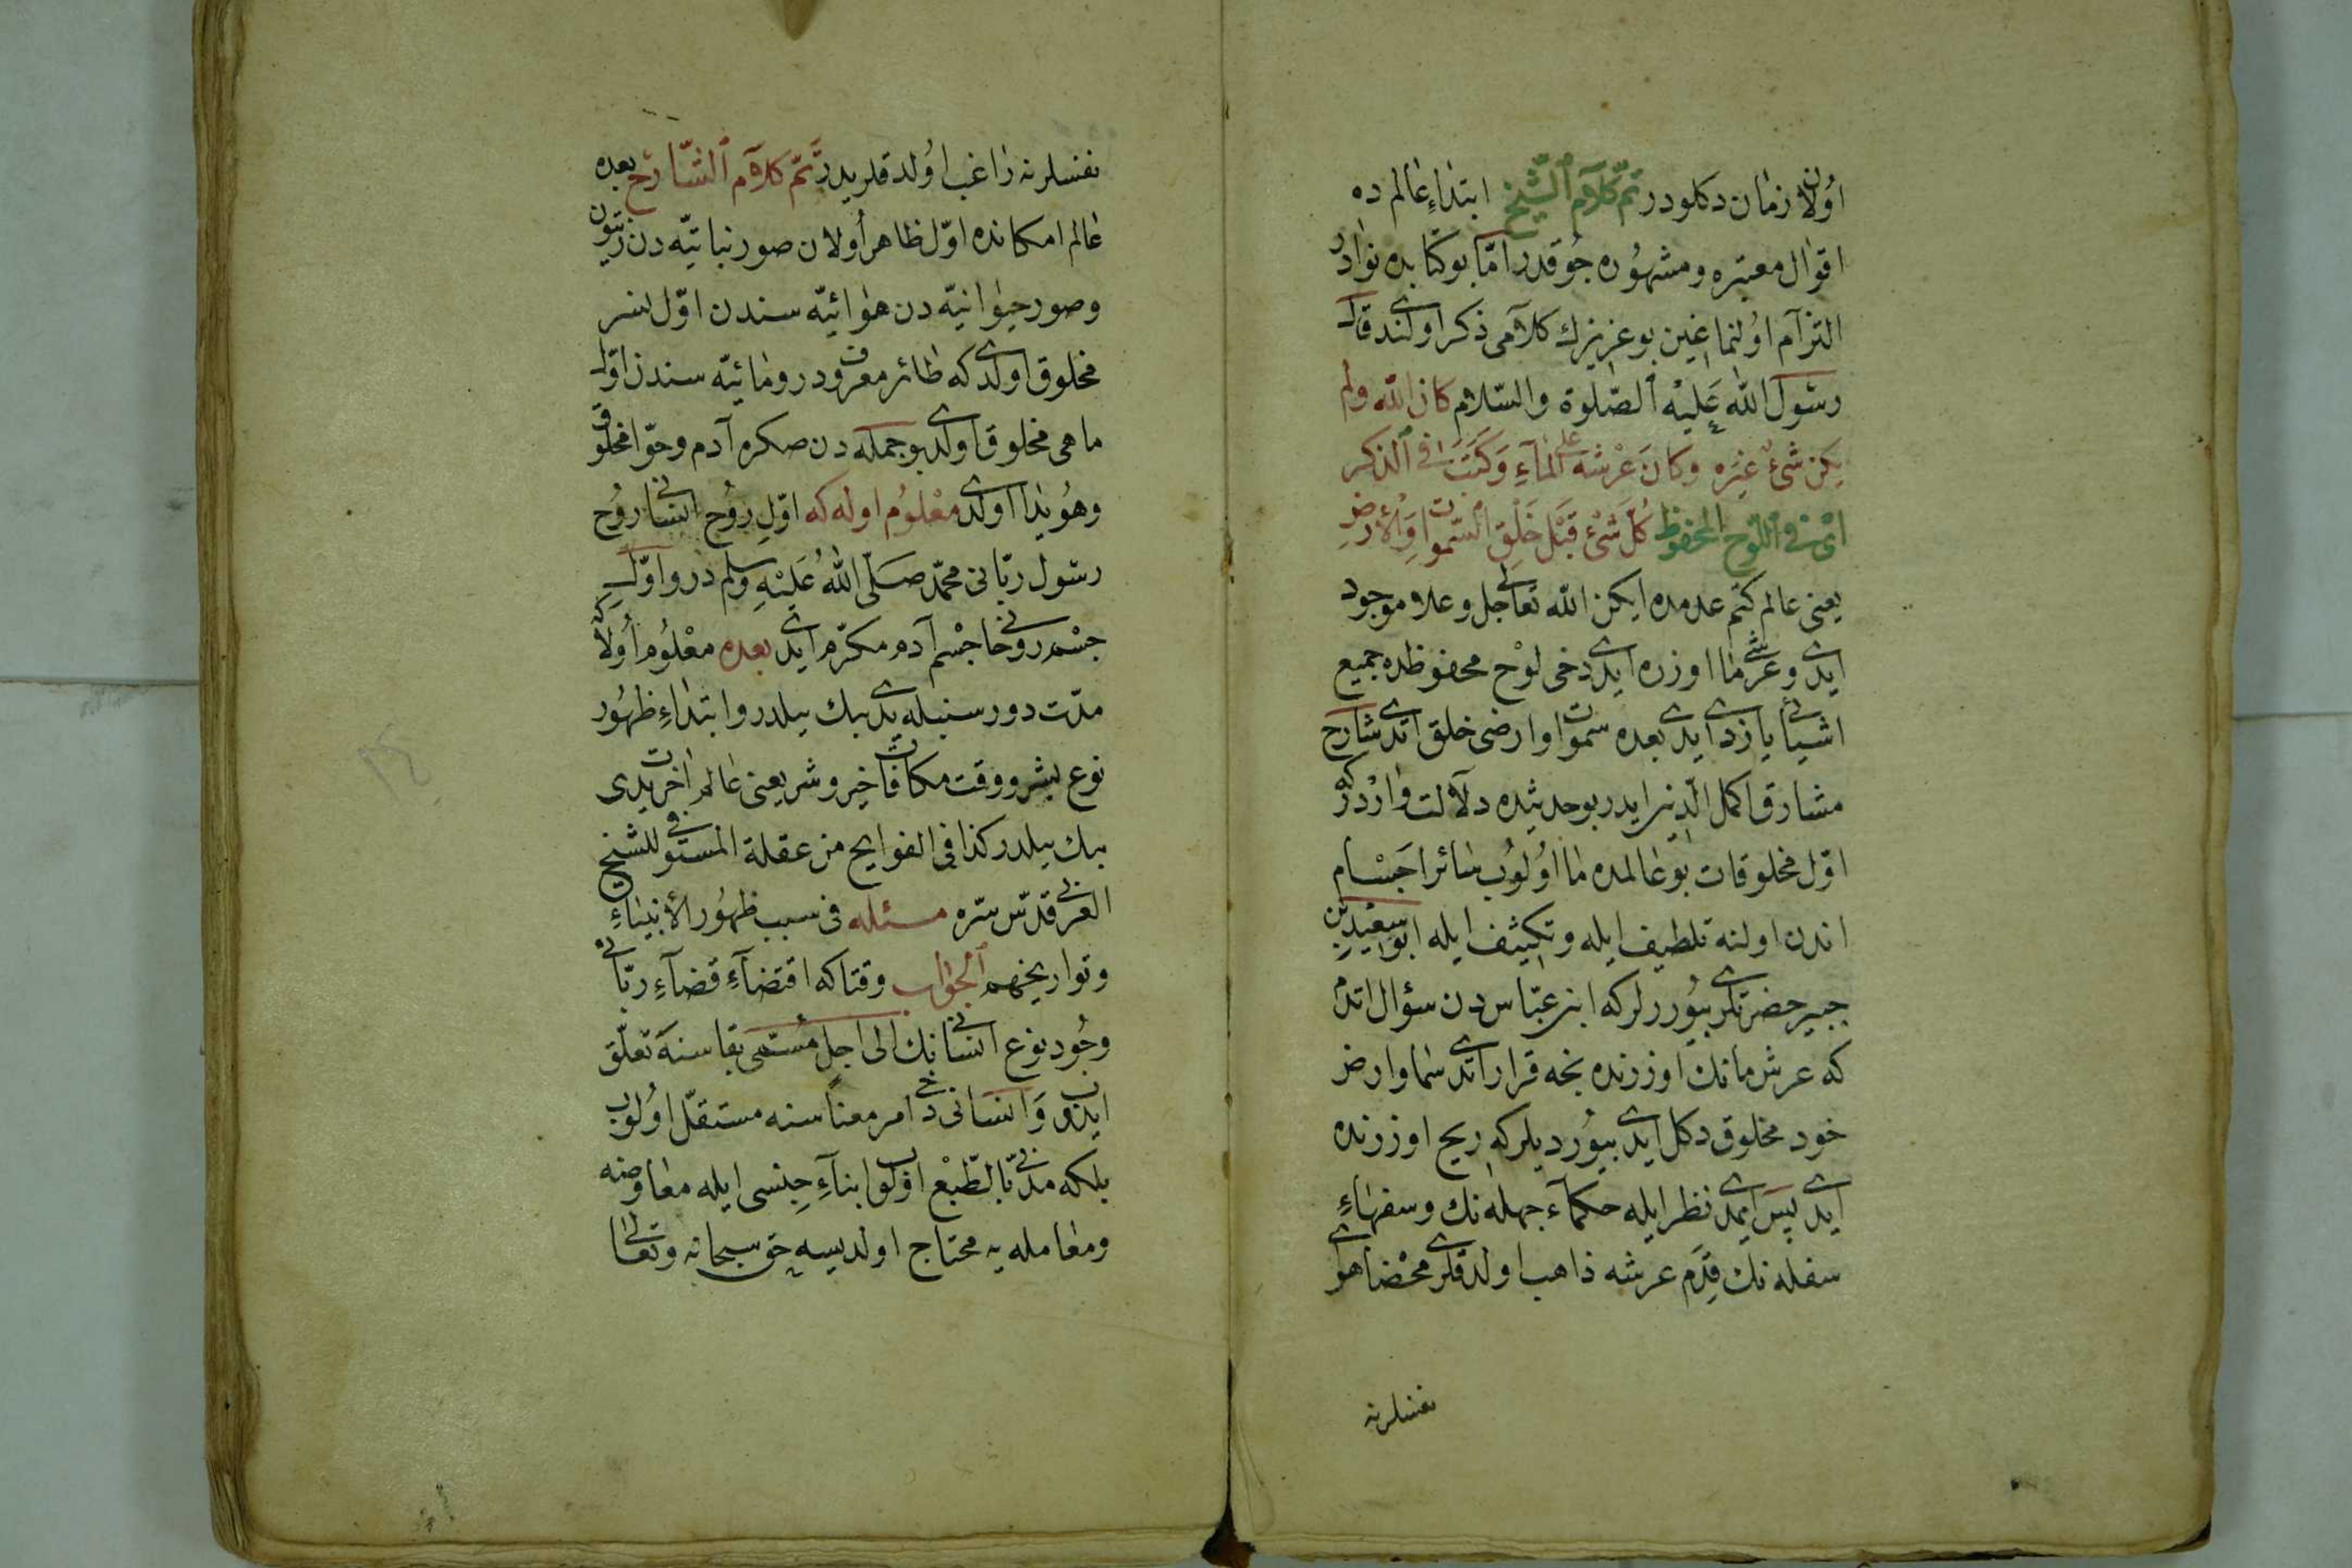 اولان زمان دكلودر تمّ كلام الشّيخ ابتداءِ عالم ده
اقوال معتبره ومشهوره جوقدر امّا بو كتابده نوادر
التزام اولنماغين بو عزيزك كلامى ذكر اولندى قال
رسول الله عليه الصّلوة والسّلام كان الله ولم
يكن شئ غيره وكان عرشه على المآء وكتب فى الذكر
اى فى اللّوح المحفوظ كلّ شئ قبل خلق السّموات والأرض
يعنى عالم كتم عدمده ايكن الله تعالى جل وعلا موجود
ايدى وعرشى ما اوزره ايدى دخى لوح محفوظده جميع
اشيائى يازدى ايدى بعده سموات وارضى خلق اتدى شارح
مشارق اكمل الدّين ايدر بو حديثده دلالت واردر كه
اوّل مخلوقات بو عالمده ما اولوب سائر اجسام
اندن اولنه تلطيف ايله وتكثيف ايله ابو سعيد بن
جبير حضرتلرى بيوررلر كه ابن عبّاس دن سؤال اتدم
كه عرش مانك اوزرنده نجه قرار اتدى سما وارض
خود مخلوق دكل ايدى بيورديلر كه ريح اوزرنده
ايدى پس ايمدى نظر ايله حكمآء جهله نك وسفهاءِ
سفله نك قِدَم عرشه ذاهب اولدقلرى محضا هواى
نفسلرنه
نفسلرنه راغب اولدقلريدر تمّ كلام الشّارح بعده
عالم امكانده اوّل ظاهر اولان صور نباتيّه دن زيتون
وصور حيوانيّه دن هوائيّه سندن اوّل نسر
مخلوق اولدى كه طائر معروفدر ومائيّه سندن اوّل
ماهى مخلوق اولدى بو جمله دن صكره آدم وحوّا مخلوق
وهويدا اولدى معلوم اوله كه اوّل روح انسانى روح
رسول ربّانى محمّد صلّى الله عليه وسلم در واوّل
جسم روحانى جسم آدم مكرّم ايدى بعده معلوم اولا كه
مدّت دور سنبله يدى بيك ييلدر وابتداءِ ظهور
نوع بشر ووقت مكافات خير وشر يعنى عالم آخرت يدى
بيك ييلدر كذا فى الفوايح من عقلة المستوفى للشيخ
العربى قدّس سرّه مسئله فى سبب ظهور الأنبياءِ
وتواريخهم الجواب وقتا كه اقتضآءِ قضآءِ ربّانى
وجود نوع انسانينك الى اجل مسمّى بقاسنه تعلّق
ايدوب وانسانى دخى امر معناسنه مستقلّ اولوب
بلكه مدنىّ بالطّبع اولوب ابنآءِ جنسى ايله معاوضه
ومعامله يه محتاج اولديسه حق سبحانه وتعالى